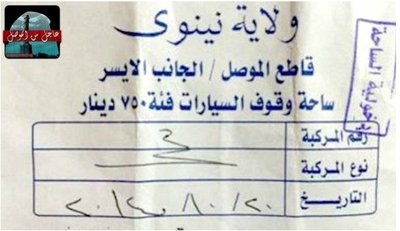 عاجل من الموصل
ولاية نينوى
قاطع الموصل / الجانب الايسر
ساحة وقوف السيارات فئة ٧٥٠ دينار
الساحة
رقم المركبة
نوع المركبة
التاريخ ٢٠ / ١٠ /